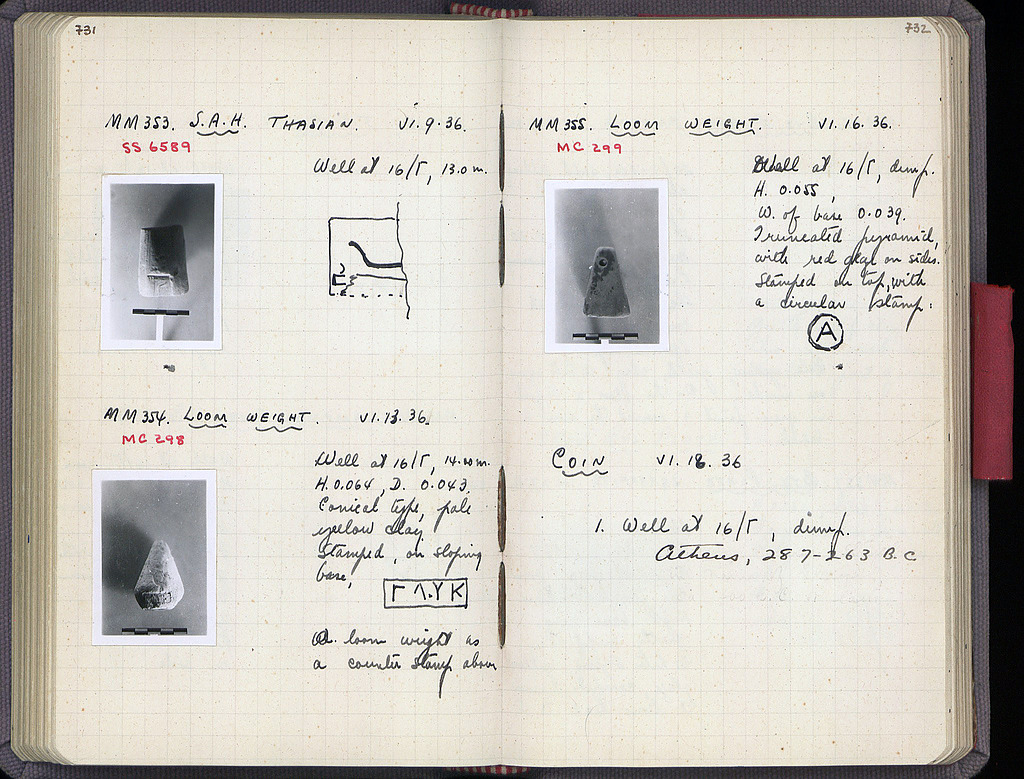 731
MM353. S.A.H. THASIAN. VI.9.36.
SS 6589
Well at 16/Γ, 13.0 m.
MM354. LOOM WEIGHT. VI.13.36.
MC 298
Well at 16/Γ, 14.00 m.
H. 0.064, D. 0.043.
Conical type, pale
yellow clay.
Stamped, on sloping
base,
a loom weight as
a counter stamp above
732
MM355. LOOM WEIGHT. VI.16.36.
MC 299
Well at 16/Γ, dump.
H. 0.055,
W. of base 0.039.
Truncated pyramid,
with red glaze on sides.
Stamped on top, with
a circular stamp:
A
COIN VI.18.36
1. Well at 16/Γ, dump.
Athens, 287-263 B.C